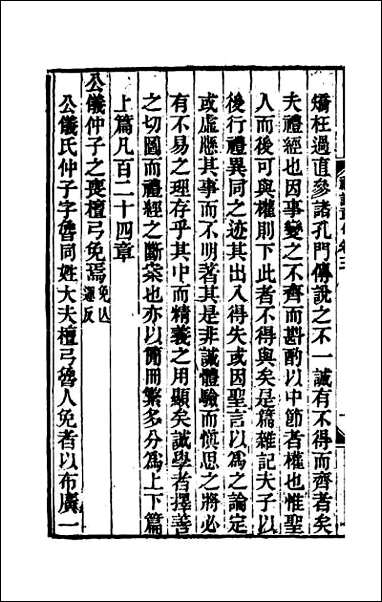 矯枉過直參諸孔門傳說之不一誠有不得而齊者矣
夫禮經也因事變之不齊而斟酌以中節者權也惟聖
人而後可與權則下此者不得與矣是篇雜記夫子以
後行禮異同之迹其出入得失或因聖言以為之論定
或虛應其事而不明著其是非誠體驗而慎思之將必
有不易之理存乎其中而精義之用顯矣誠學者擇善
之切圖而禮經之斷案也亦以簡冊繁多分為上下篇
上篇凡百二十四章
公儀仲子之喪檀弓免焉免以運反
公儀氏仲子字魯同姓大夫檀弓魯人免者以布廣一